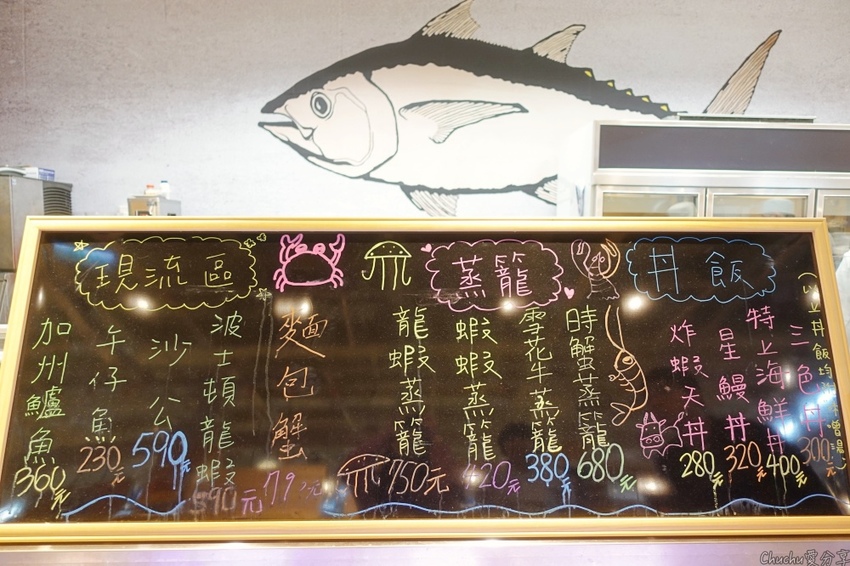 現流區
加州鱸魚 360元
午仔魚 230元
沙公 590元
波士頓龍蝦 590元
麵包蟹
蒸籠
龍蝦蒸籠 750元
蝦蝦蒸籠 420元
雪花牛蒸籠 380元
時蟹蒸籠 680元
丼飯
炸蝦天丼 280元
星鰻丼 320元
特上海鮮丼 400元
三色丼 300元
(以上丼飯均附味噌湯)
Chuchu愛分享